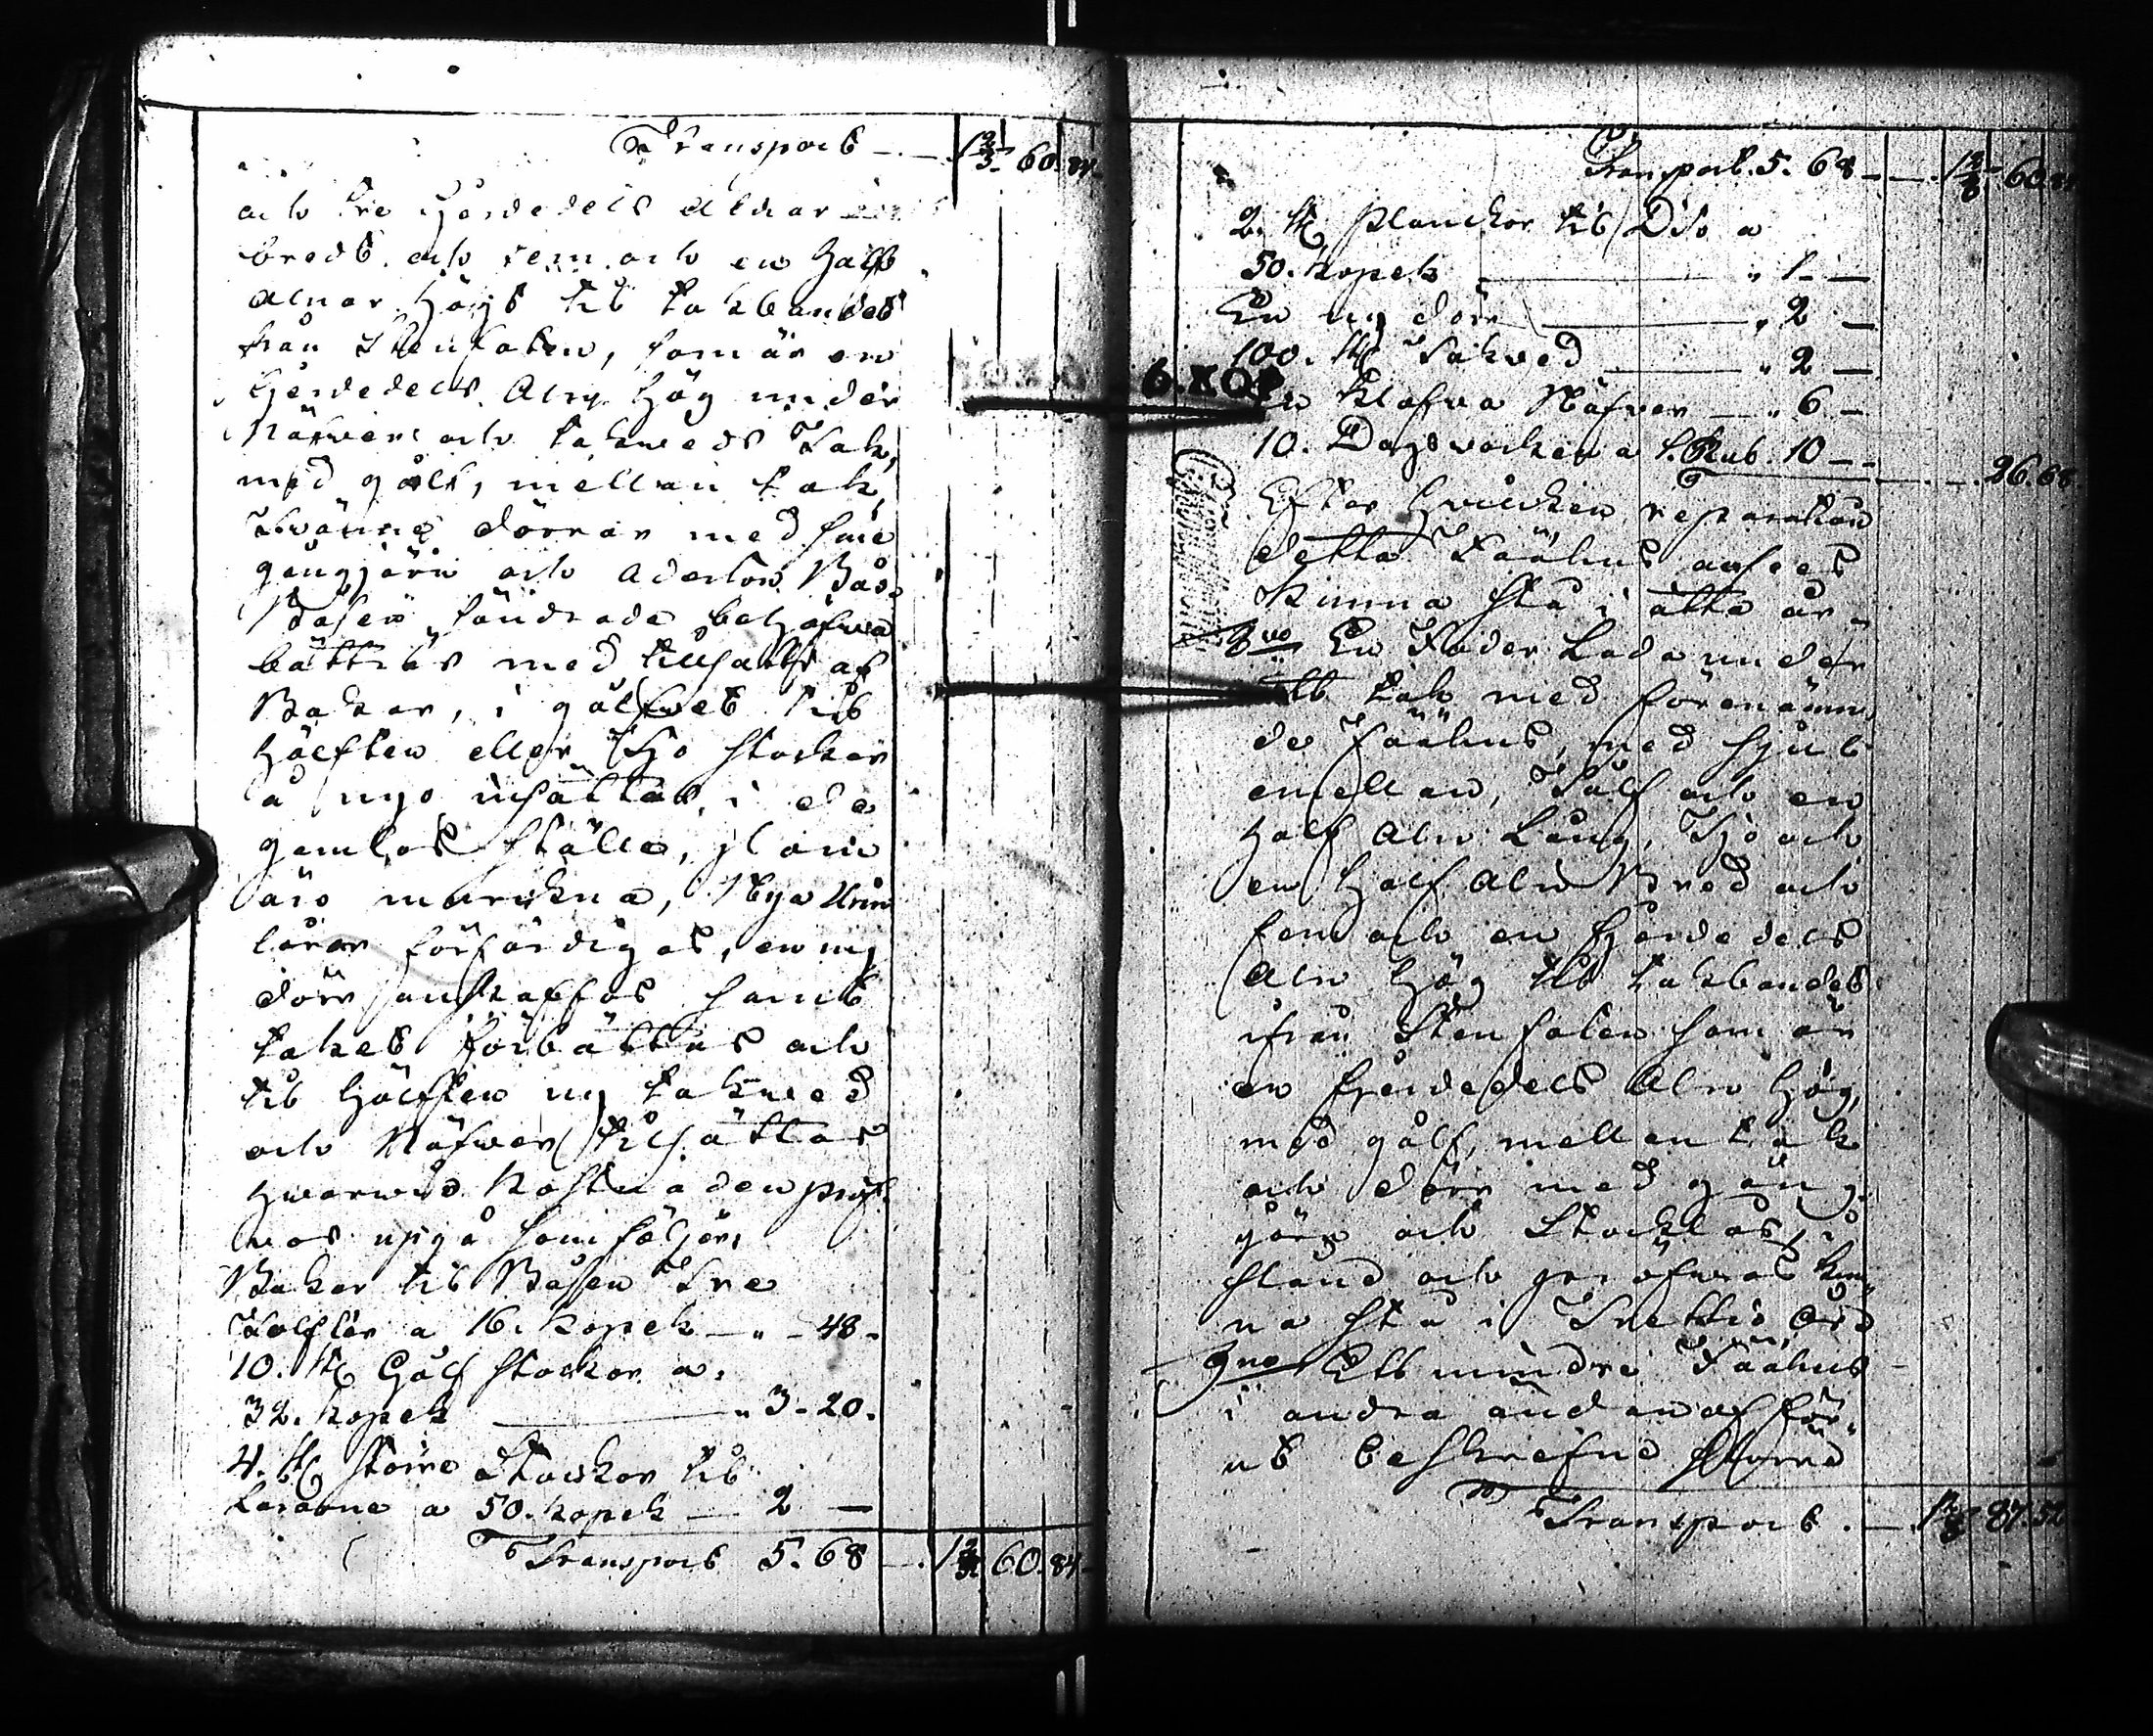 Transport 1 2/3 60. 84
och tre fjerdedels alnar
bredt och fem och en half
alnar högt till takbandet
från Stenfoten, som är en
fjerdedels Aln hög under
Näfwer och takweds Tak,
med golf, mellan tak,
Twänne dörrar med sine
gångjärn och Aderton Bås.
Båsen söndrade behöfwa
bättras med tillsatts af
Bakar, i golfwet till
hälften eller Tijo stockar
å nyo insättas, i de
gamlas ställe, som
äro murkna, Nya Urin
lårar förfärdigas, en ny
dörr anskaffas samt
taket förbättras och
till hälften ny takwed
och Näfwer tillsättas
hwarwid Kostnaden pröf-
was upgå som följer,
Bakar till Båsen Tre
Tolfter a 16. kopek - " - 48 -
10. st Golf stockar a.
32. kopek " 3 - 20.
4. st större Stockar till
Lårarne a 50. kopek 2 -
Transport 5. 68 1 2/3 60. 84
Transport. 5. 68 1 2/3 60. 84
2. st Planckor till Dito a
50. kopek " 1 -
En ny dörr " 2 -
100. st Takwed " 2 -
6. KOP
En Klafwa Näfwer " 6 -
10. Dagswerken a 1. Rub. 10 - 26. 68
Efter hwilcken reparation
detta Fäähus anses
Kunna stå i åtta år.
8vo En Foder Lada under
ett tak med förenämn
de Fäähus, med skjul
emellan, Tålf och en
half Aln Lång, Tijo och
en half Aln Bred och
fem och en fjerdedels
Aln hög till takbandet
ifrån Stenfoten som är
en fjerdedels Aln hög,
med golf, mellan tak
och dörr med gång
järn och Stocklås, i
stånd och pröfwas kun
na stå i Trettio år
9no Ett mindre Fäähus
i andra ändan af för
ut beskrefne större
Transport. 1 2/3 87. 52